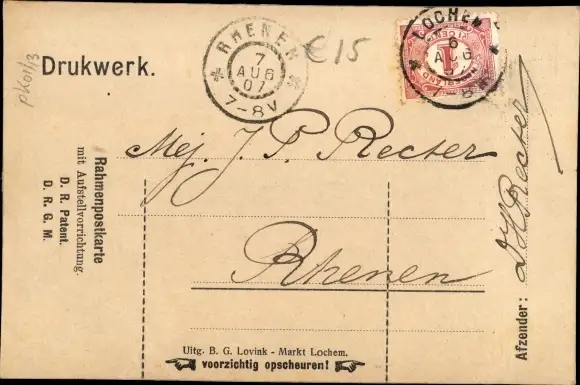 Drukwerk.
RHENEN
7
AUG
07
7-8V
€15
LOCHEM
6
AUG
07
7-8
1
pk01/13
Mej. J. P. Recter
Rhenen
Rahmenpostkarte
mit Aufstellvorrichtung.
D. R. Patent.
D. R. G. M.
Afzender:
Recter
Uitg. B. G. Lovink - Markt Lochem.
voorzichtig opscheuren!